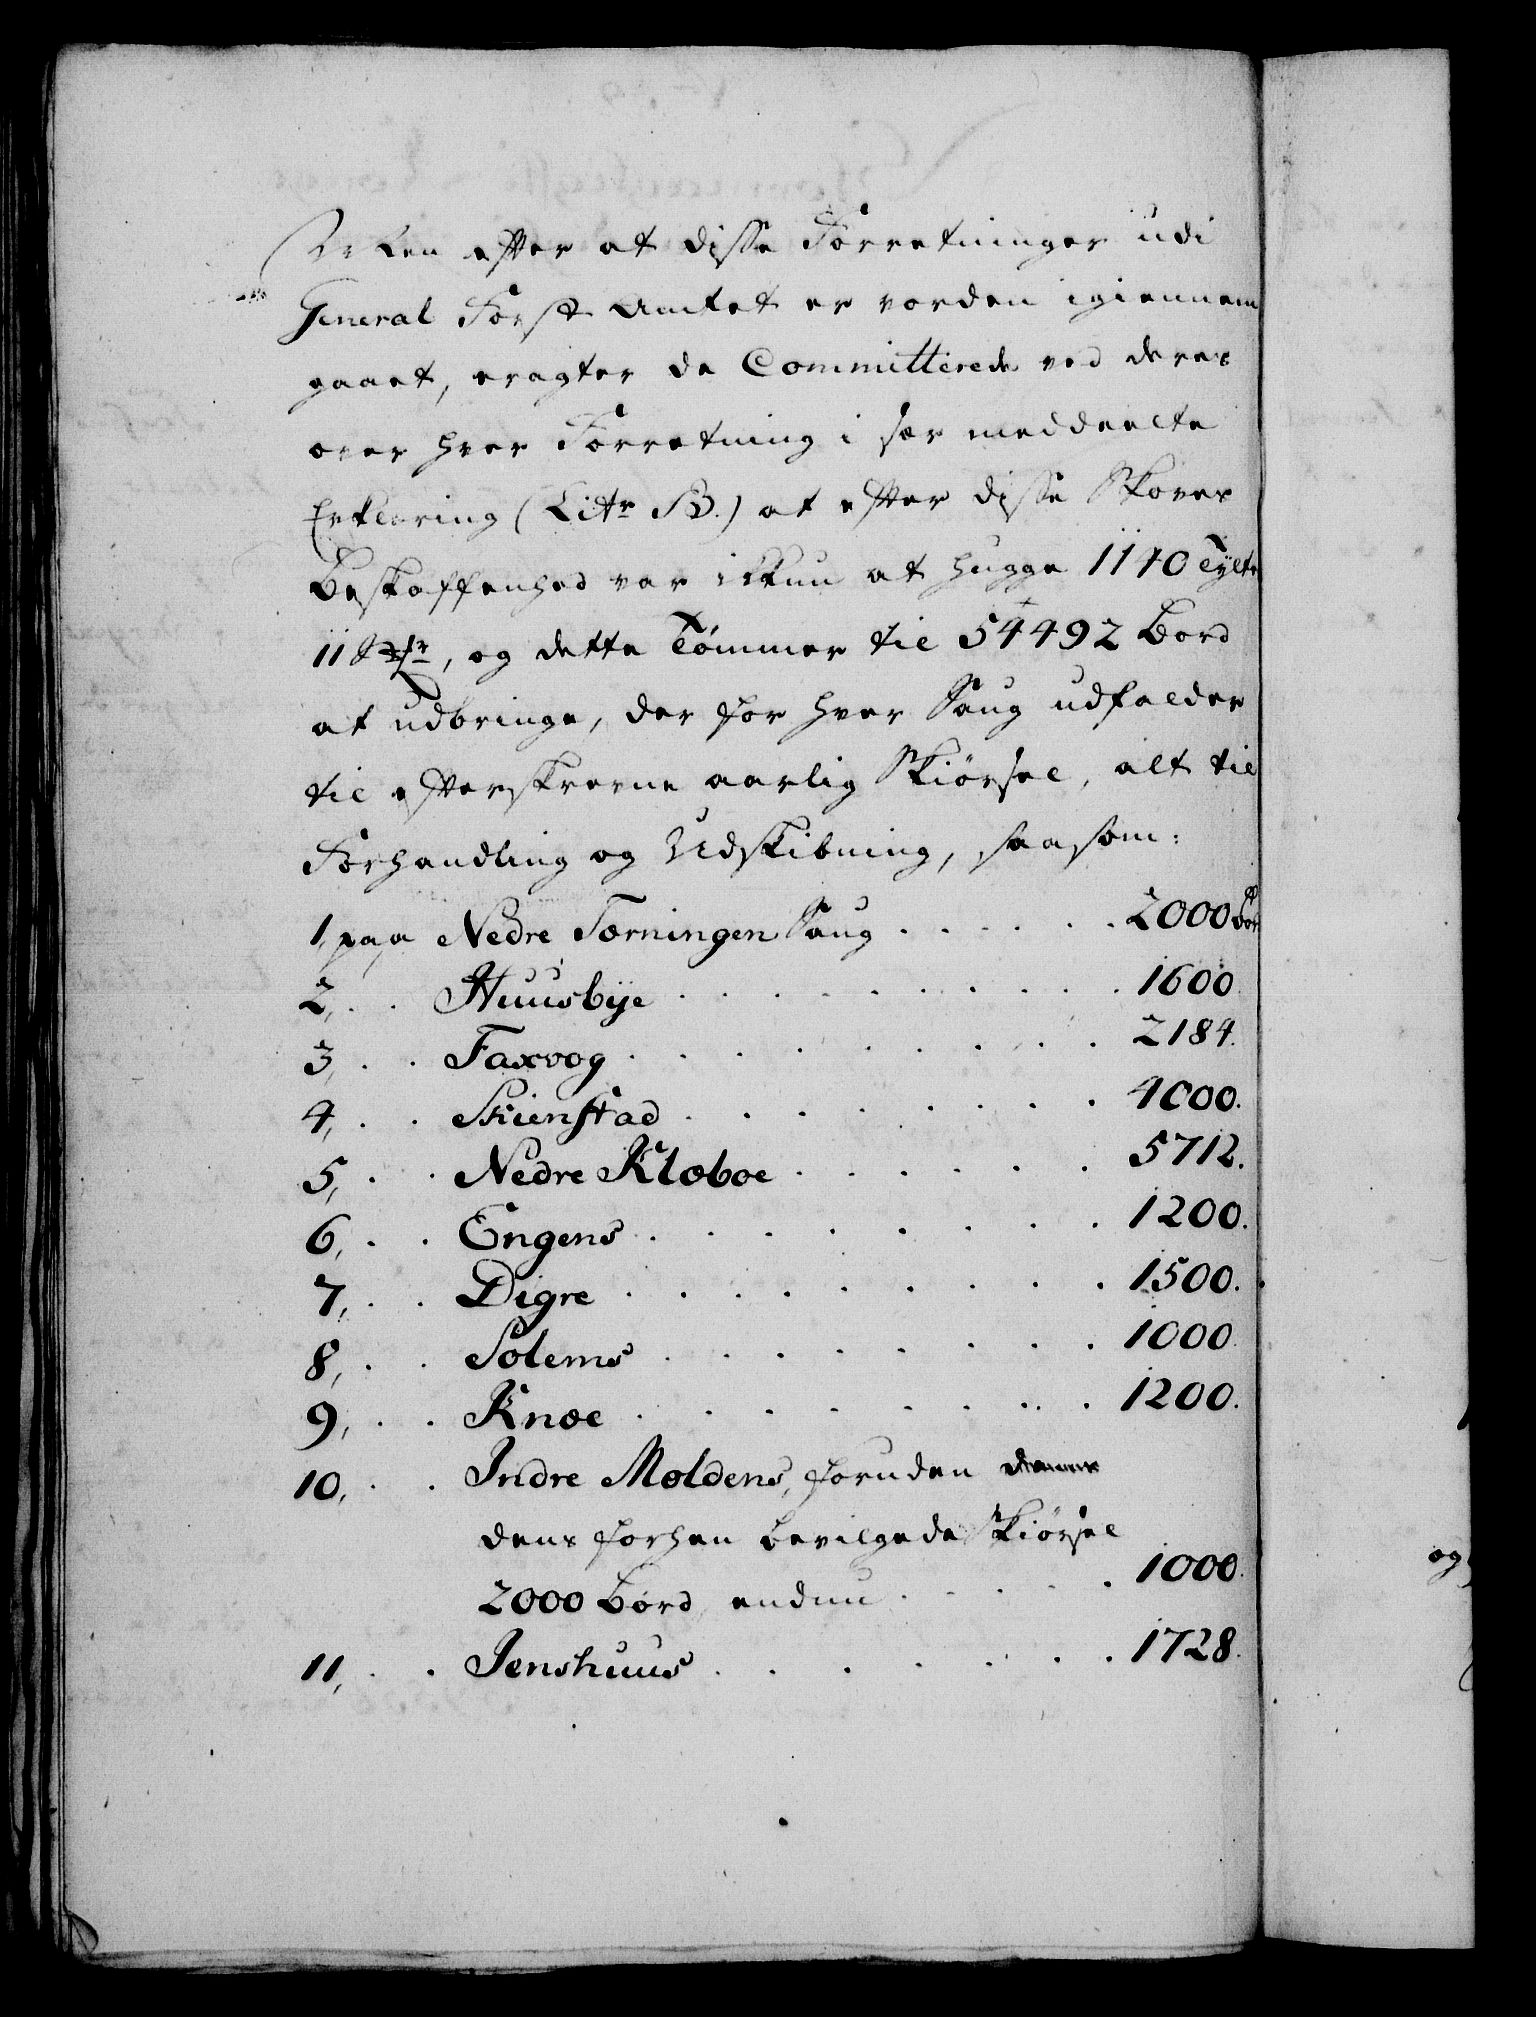 Men efter at disse Forretninger udi
General Forst Amtet er vorden igiennem
gaaet, eragter de Committerede ved deres
over hver Forretning i sær meddeelte
Erklæring (Litr B.) at efter disse Skoves
Beskaffenhed var ikkun at hugge 1140 Tylt
11 St, og dette Tømmer til 54492 Bord
at udbringe, der for hver Saug udfalder
til efterskrevne aarlig Skiørsel, alt til
Forhandling og Udskibning, saasom:
1, paa Nedre Tørningen Saug . . . . . 2000 Bord
2, . . Huusbye . . . . . . . . 1600.
3, . . Faxvog . . . . . . . . 2184.
4, . . Skienstad . . . . . . . . 4000.
5, . . Nedre Klæboe . . . . . . 5712.
6, . . Engens . . . . . . . . 1200.
7, . . Digre . . . . . . . . . 1500.
8, . . Solems . . . . . . . . 1000.
9, . . Knoe . . . . . . . . . 1200.
10, . . Indre Moldens, foruden
dens forhen bevilgede Skiørsel
2000 Bord, endnu . . . . . 1000.
11, . . Jenshuus . . . . . . . 1728.
og